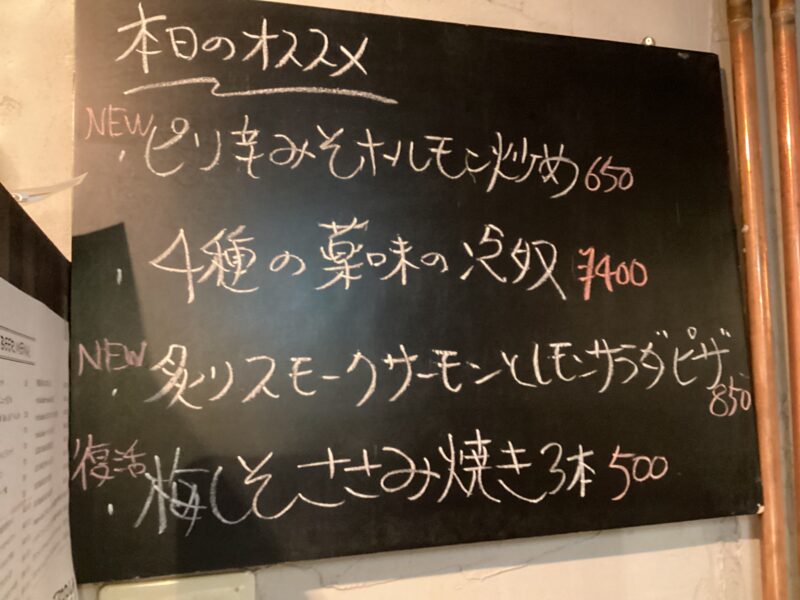 本日のオススメ
NEW
・ピリ辛みそホルモン炒め 650
・4種の薬味の冷奴 ¥400
NEW
・炙りスモークサーモンとレモンサラダピザ
850
復活
・梅しそささみ焼き3本 500